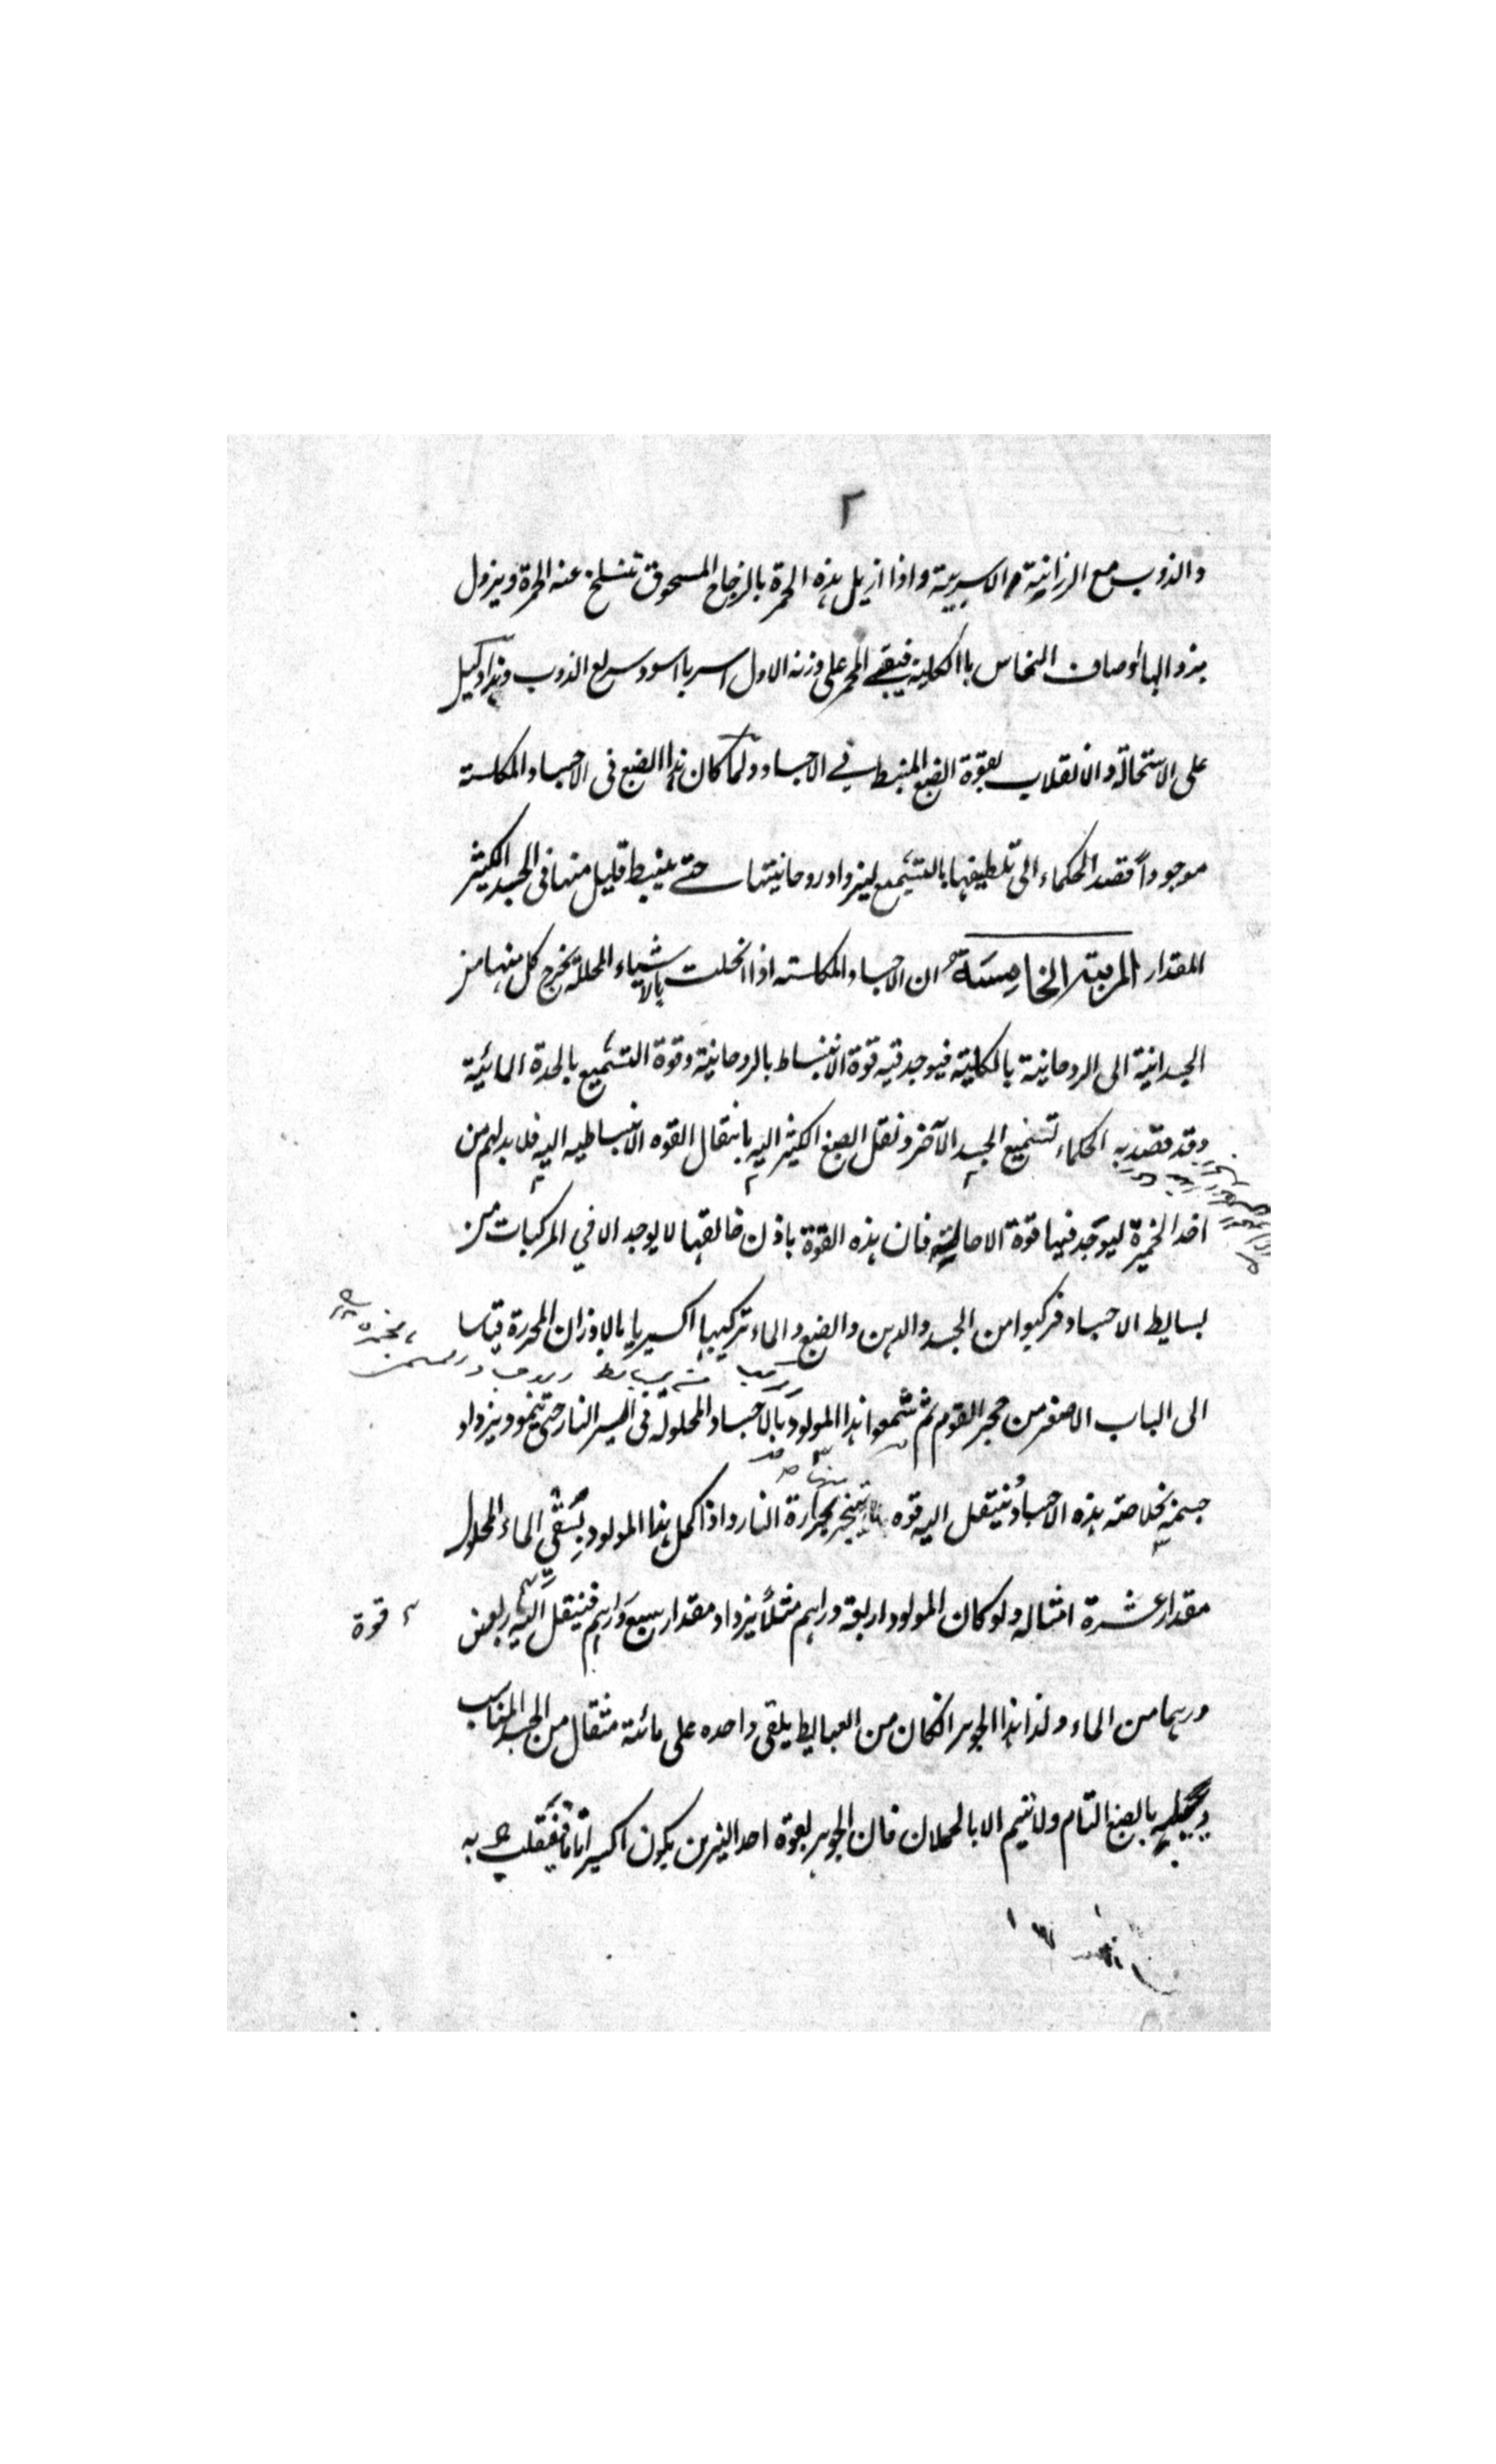 ٢
والذوب مع الرزانية والاسربية واذا ازيل هذه الحمرة بالزجاج المسحوق تنسلخ عنه الحمرة ويزول
بزوالها اوصاف النحاس بالكلية فيبقى المحمر على وزنه الاول اسربا اسود سريع الذوب وهذا دليل
على الاستحالة والانقلاب بقوة الصبغ المنبسط في الاجساد ولما كان هذا الصبغ فى الاجساد المكلسة
موجوداً قصد الحكماء الى تلطيفها بالتشميع ليزداد روحانيتها حتى ينبسط قليل منها فى الجسد الكثير
المقدار المرتبة الخامسة ان الاجساد المكلسة اذا انحلت بالاشياء المحللة يخرج كل منها من
الجسدانية الى الروحانية بالكلية فيوجد فيه قوة الانبساط بالروحانية وقوة التشميع بالحدة المائية
وقد قصد به الحكماء تشميع الجسد الآخر ونقل الصبغ الكثير اليه بانتقال القوه الانبساطيه اليه فلا بد لهم من
اخذ الخميرة ليوجد فيها قوة الاحالية فان هذه القوة باذن خالقها لا يوجد الا في المركبات من
بسايط الاجساد فركبوا من الجسد والدهن والصبغ والماء تركيبا اكسيريا بالاوزان المحررة قياسا
الى الباب الاصغر من حجر القوم ثم شمعوا هذا المولود بالاجساد المحلولة فى ايسر النار حتى ينمو ويزداد
جسمه بخلاصة هذه الاجساد فينتقل اليه قوه بحرارة النار واذا كمل هذا المولود يسقى الماء المحلول
مقدار عشرة امثاله ولو كان المولود اربعة دراهم مثلاً يزداد مقدار سبع دراهم فينتقل اليه اربعين
قوة
درهما من الماء ولذا هذا الجوهر انكان من العبايط يلقى واحده على مائة مثقال من الجسد المناسب
بالصبغ التام ولا يتم الا بالحملان فان الجوهر بقوة احد النيرين يكون اكسيرا تاما فينقلب به